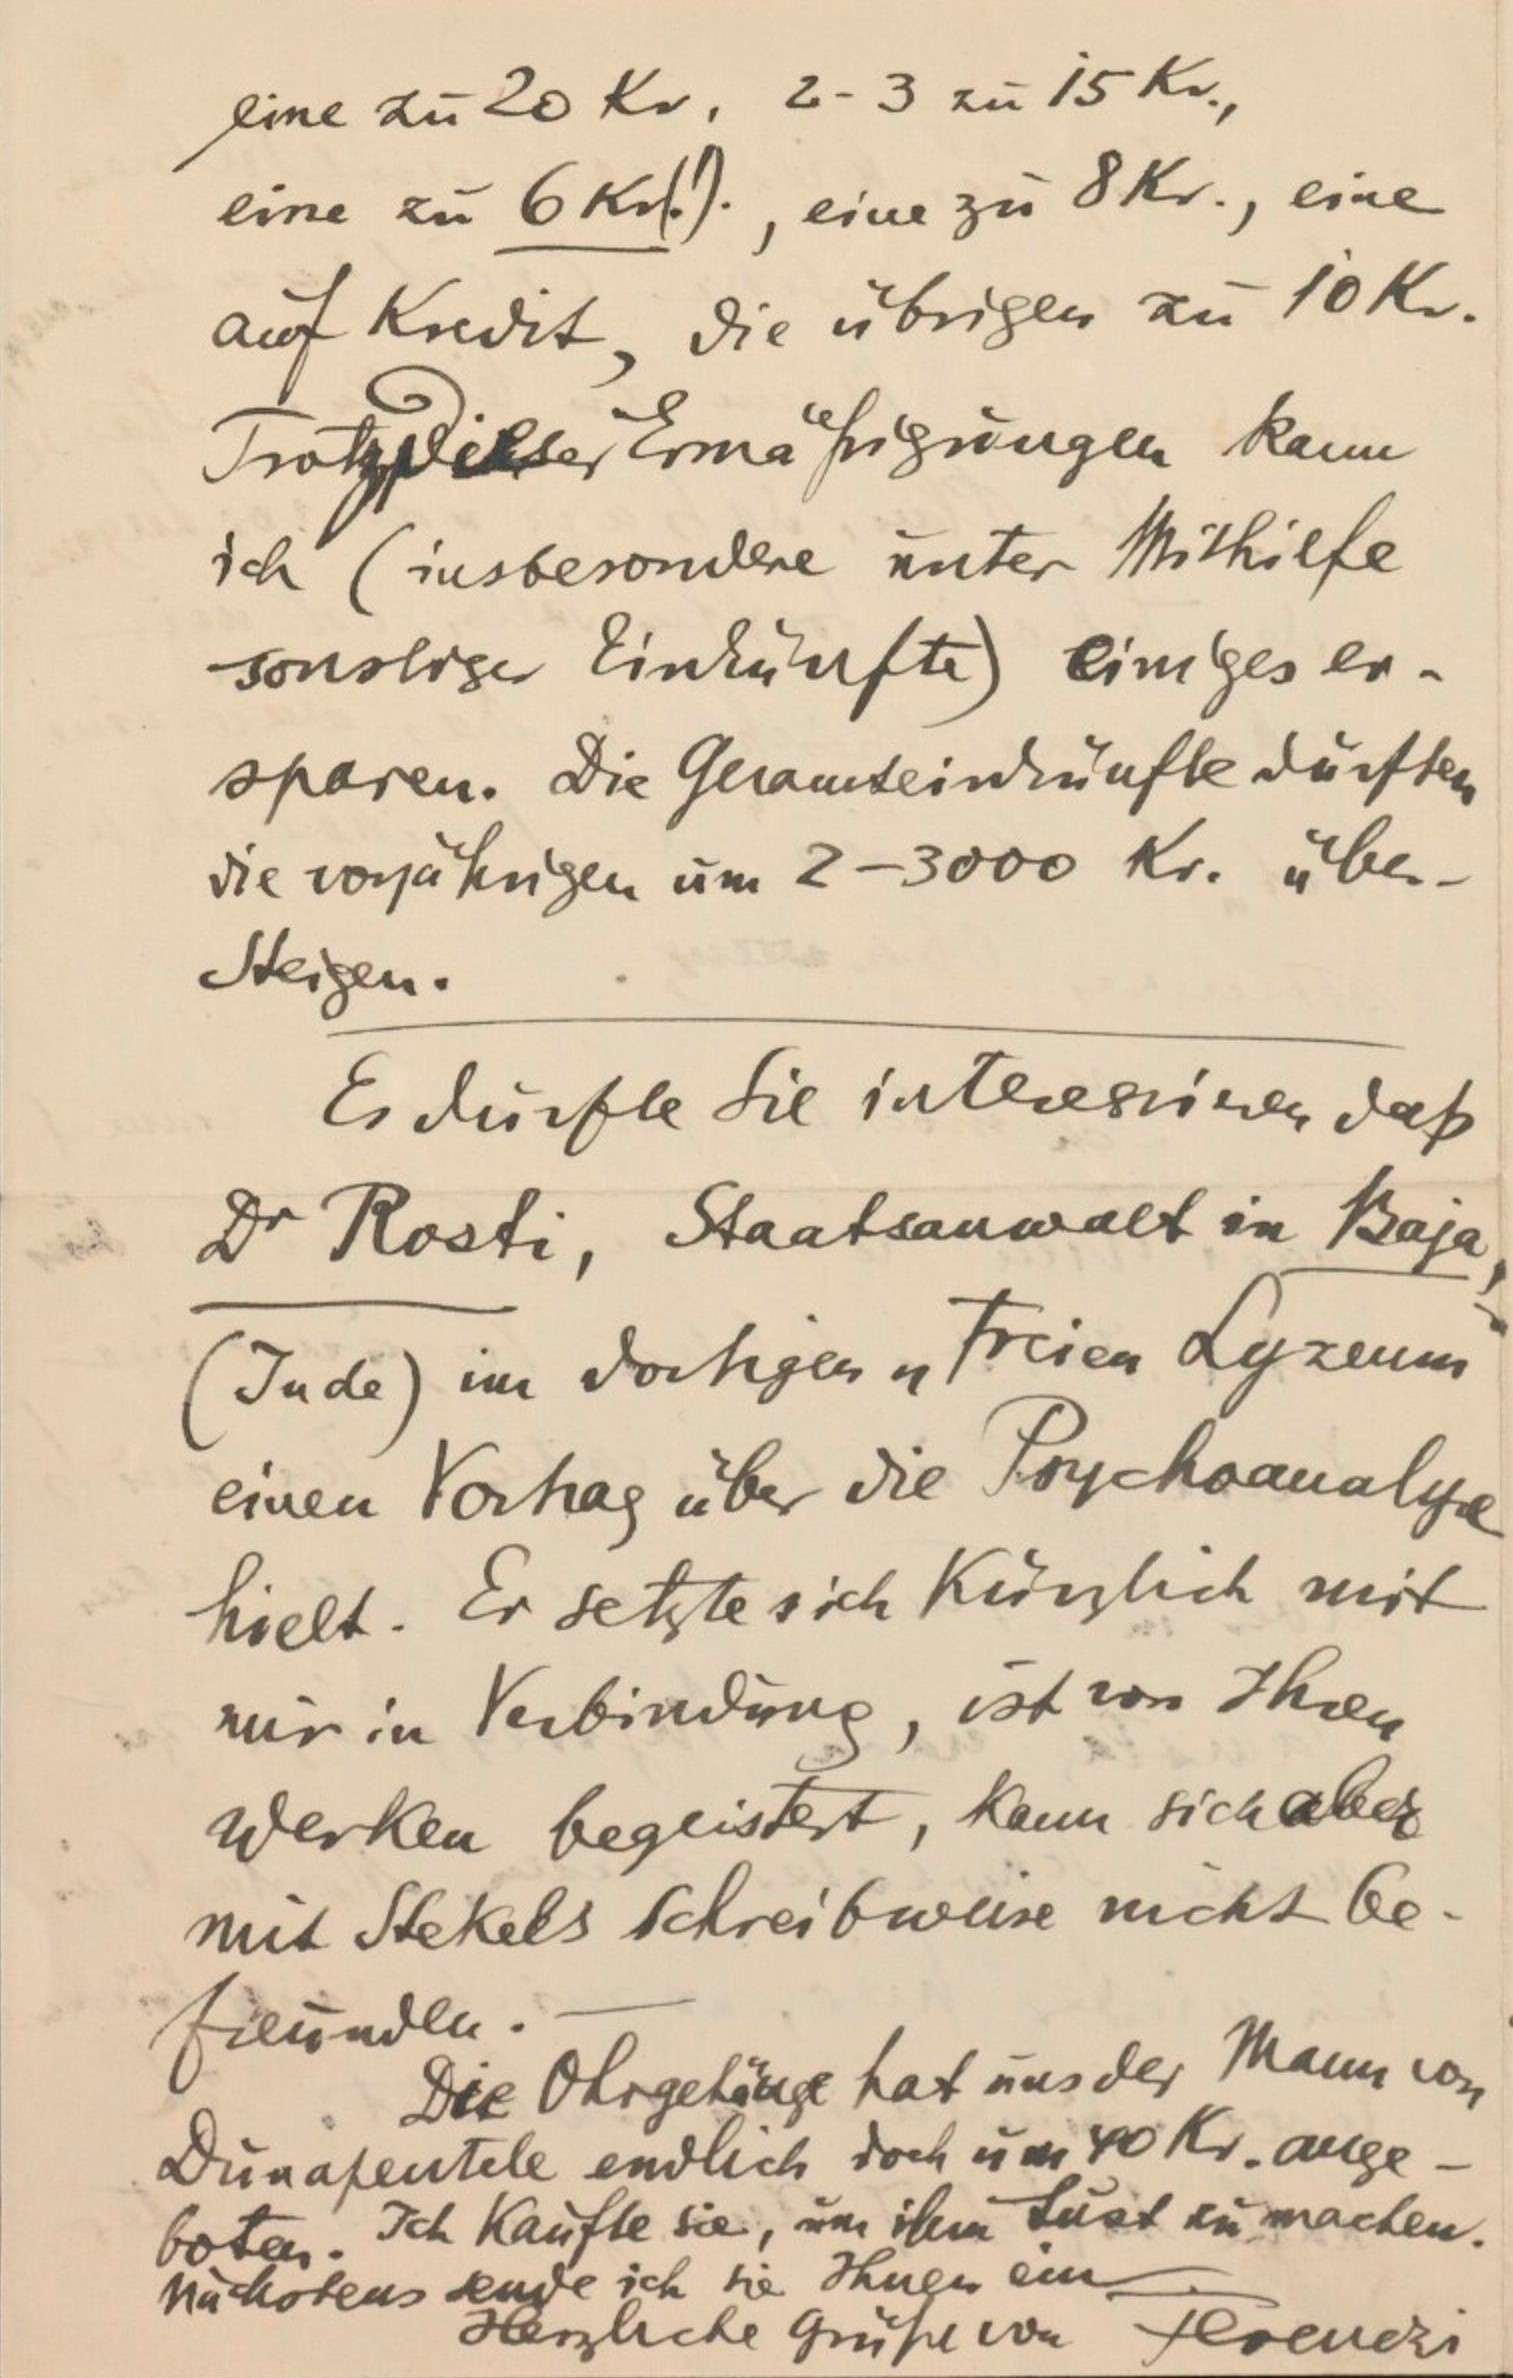 eine zu 20 Kr, 2-3 zu 15 Kr.,
eine zu 6 Kr(!)., eine zu 8 Kr., eine
auf Kredit, die übrigen zu 10 Kr.
Trotz dieser Ermäßigungen kann
ich (insbesondere unter Mithilfe
sonstiger Einkünfte) einiges er-
sparen. Die Gesamteinkünfte dürften
die vorjährigen um 2-3000 Kr. über-
steigen.
Es dürfte Sie interessiren daß
Dr Rosti, Staatsanwalt in Baja,
(Jude) im dortigen „Freien Lyzeum
einen Vortrag über die Psychoanalyse
hielt. Er setzte sich kürzlich mit
mir in Verbindung, ist von Ihren
Werken begeistert, kann sich aber
mit Stekels Schreibweise nicht be-
freunden. —
Die Ohrgehänge hat uns der Mann von
Dunapentele endlich doch um 40 Kr. ange-
boten. Ich kaufte sie, um ihm Lust zu machen.
Nächstens sende ich sie Ihnen ein —.
Herzliche Grüße von Ferenczi